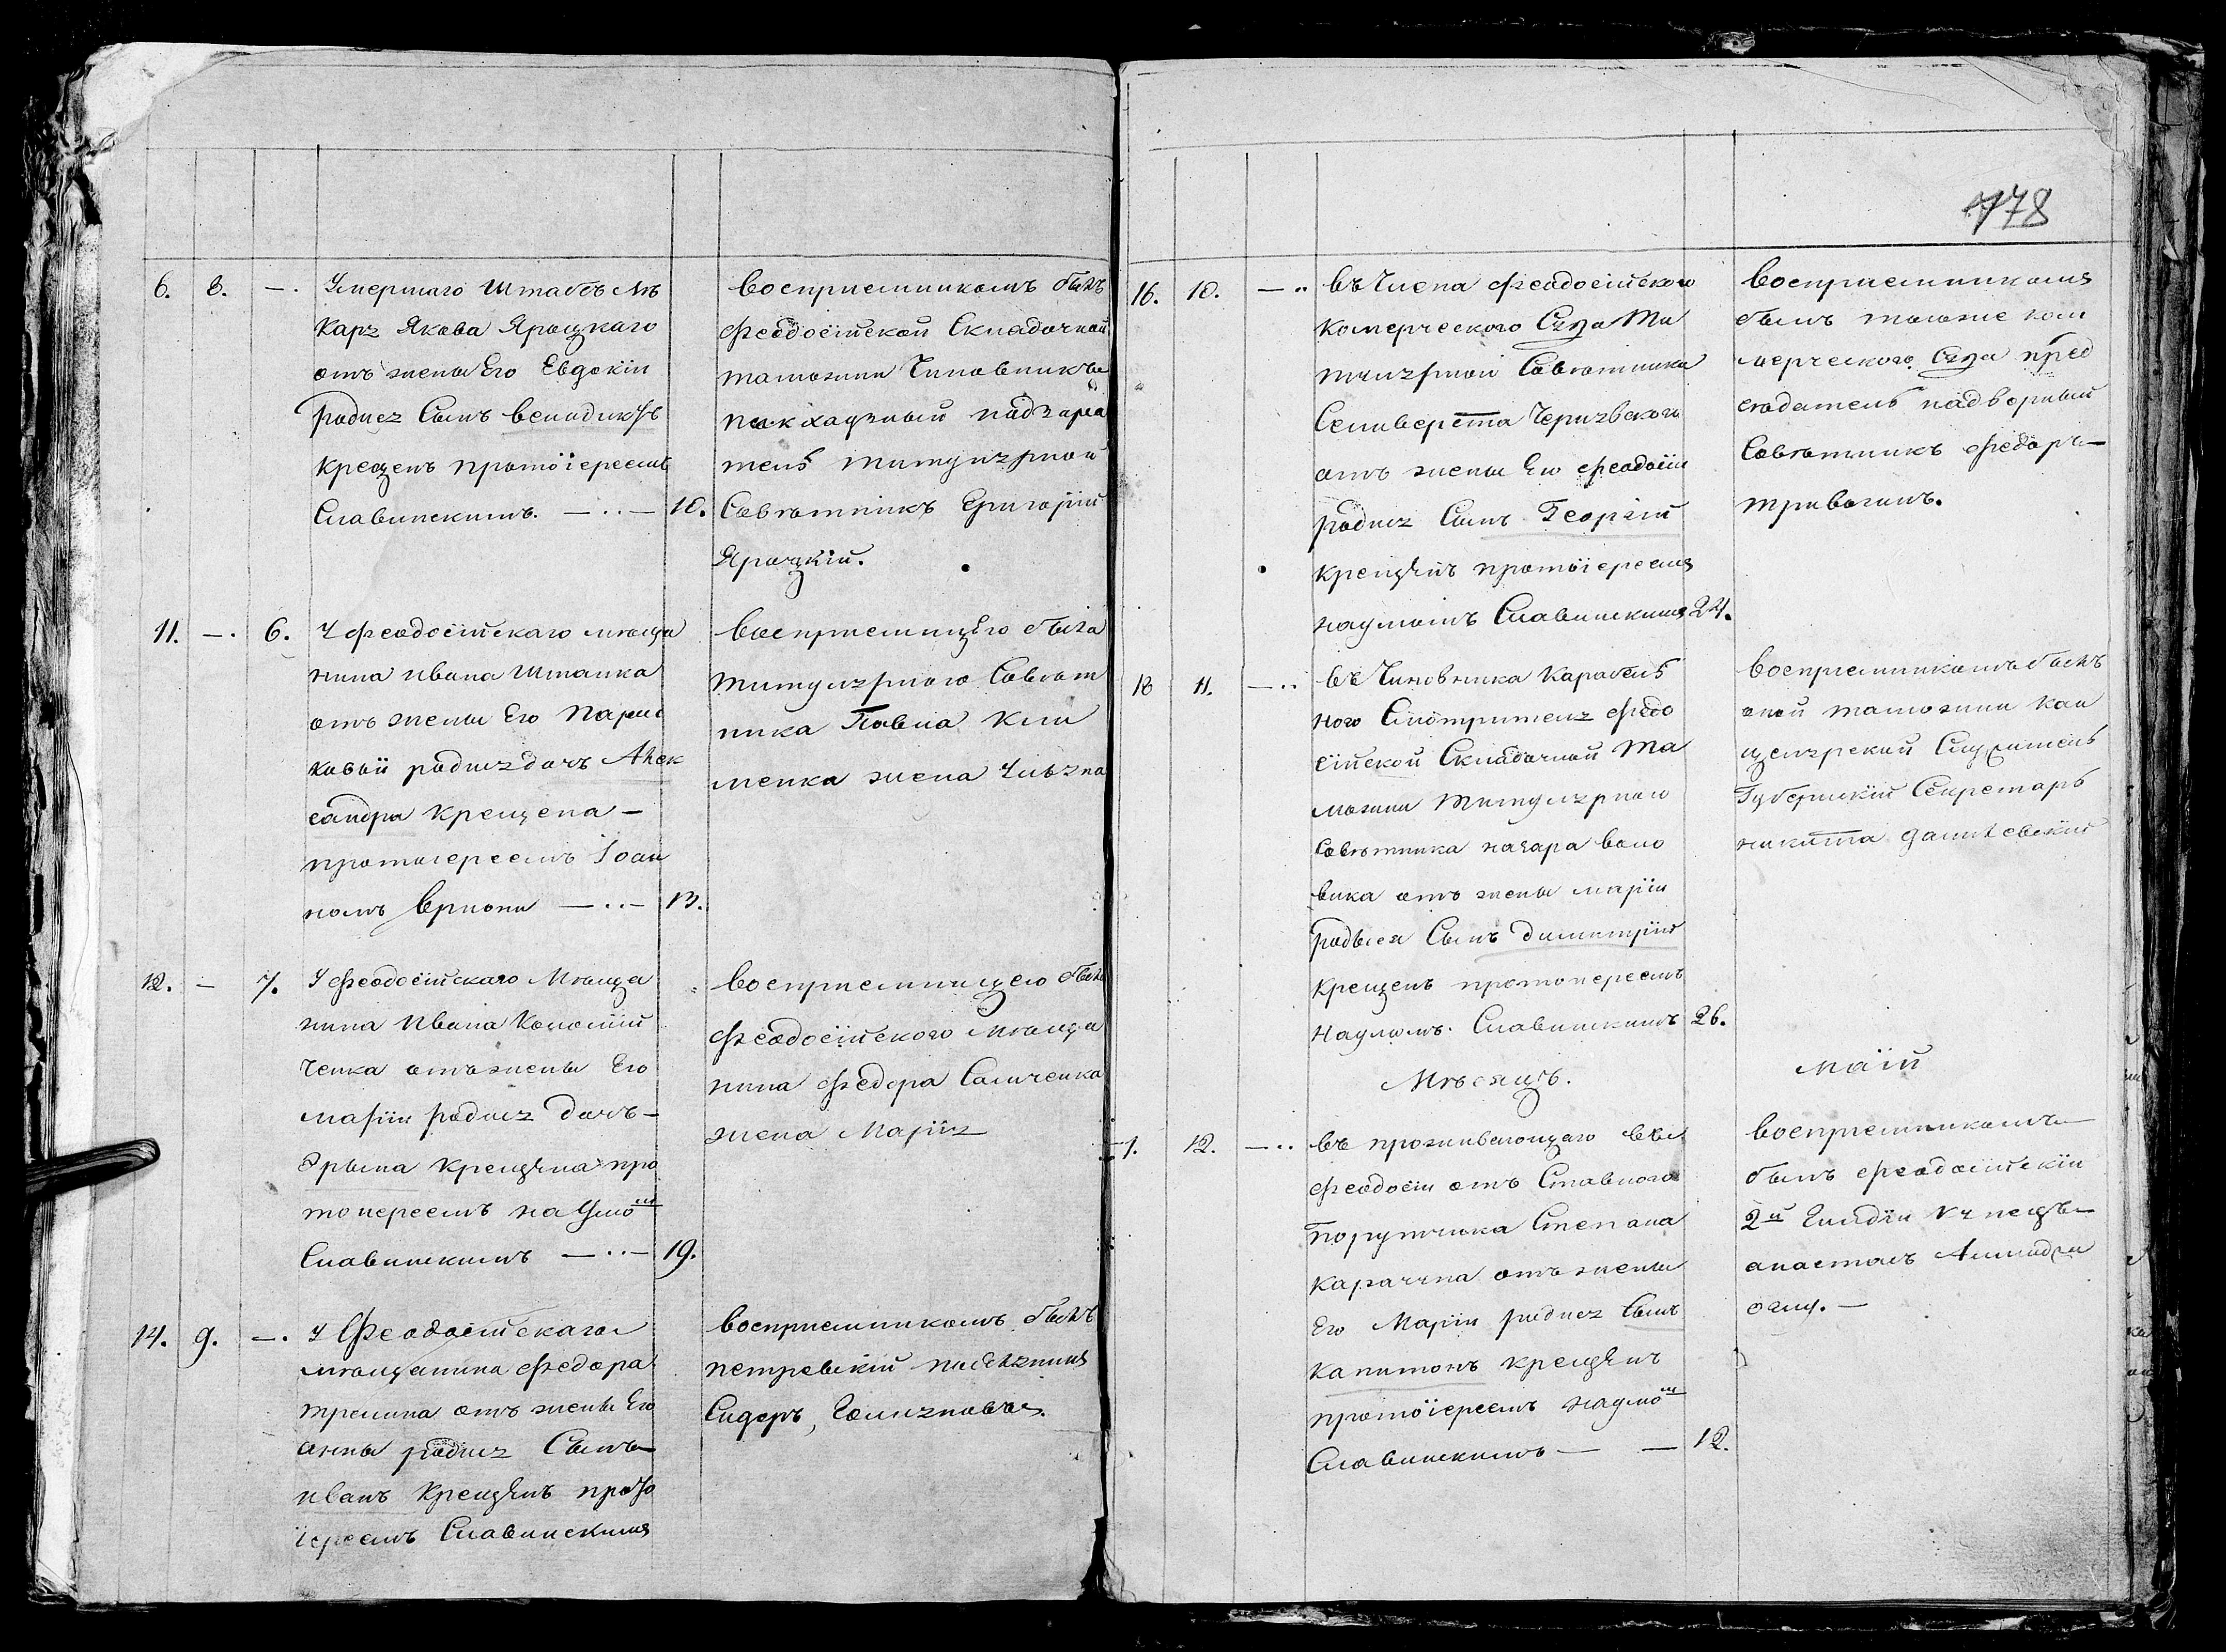 6. 8. —. Умершаго Штабъ Лѣ
каря Якова Яроцкаго
отъ жены Его Евдокіи
родился Сынъ Венедиктъ
крещенъ протоіереемъ
Славинскимъ. — ·· — 10.
Воспріемникомъ былъ
Феодосійской Складочной
таможни Чиновникъ
пакхаузный надзира
тель титулярной
Совѣтникъ Григорій
Яроцкій.
11. —. 6. У Феодосійскаго мѣща
нина Ивана
отъ жены Его Парас
ковіи родилась дочь Алек
сандра крещена —
протоіереемъ Іоан
номъ — ·· — 13.
Воспріемницею была
титулярнаго Совѣт
ника Павла Кли
менка жена
12. — 7. У Феодосійскаго Мѣща
нина Ивана Коломій
ченка отъ жены Его
Маріи родилась дочь —
Ирына крещена про
тоіереемъ Наумо м
Славинскимъ — ·· — 19.
Воспріемницею была
Феодосійского Мѣща
нина Федора Самченка
жена Марія
14. 9. —. У Феодосійскаго
мѣщанина Федора
отъ жены Его
Анны родился Сынъ —
Иванъ крещенъ прото
іереемъ Славинскимъ
Воспріемникомъ былъ
Сидоръ,
778
16. 10. — ·· въ Члена Феодосійского
Комерческого Суда Ти
тулярной Совѣтника
Селиверста
отъ жены Его Феодосіи
родился Сынъ Георгій
крещенъ протоіереемъ
Наумомъ Славинскимъ 24.
Воспріемникомъ
былъ тогоже ком
мерческого Суда пред
седатель надворный
Совѣтникъ Федоръ —
18 11. — ·· въ Чиновника Карабель
ного Смотрителя Феодо
сійской Складочной Та
можни Титулярного
Совѣтника Назара Воло
вика отъ жены Маріи
родился Сынъ Димитрій
крещенъ протоіереемъ
Наумомъ Славинскимъ 26.
Воспріемникомъ былъ
оной таможни Кан
целярской Служитель
Губернскій Секретарь
Никита Данилевскій
Мѣсяцъ.
Маій
1. 12. — ·· въ проживающаго въ
Феодосіи отъ Ставного
Порутчика Степана
отъ жены
Его Маріи родился Сынъ
Капитонъ крещенъ
протоіереемъ Наумо м
Славинскимъ — — 12.
Воспріемникомъ —
былъ Феодосійскій
2й Гилдіи Купецъ —
Анастасъ